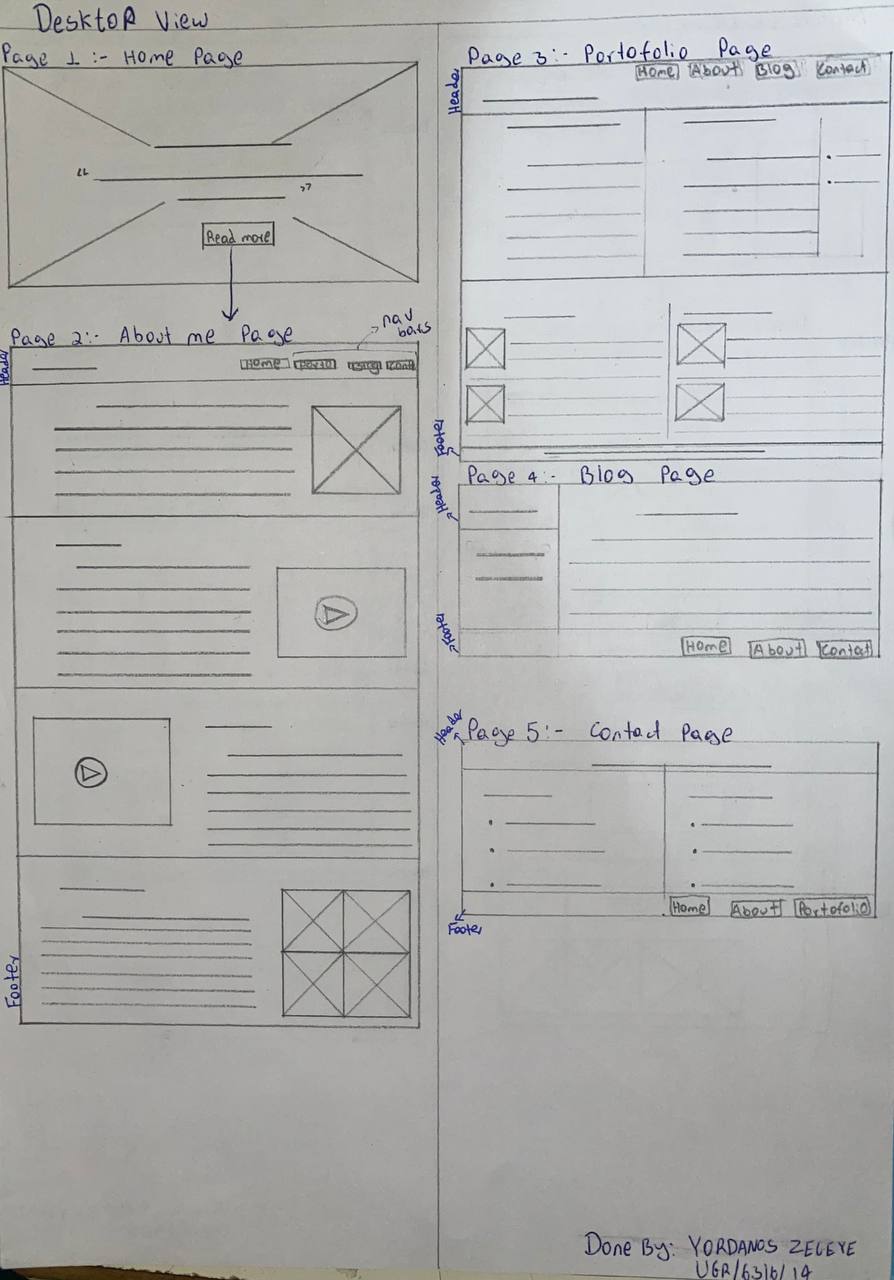 DesktoR View
Page 1:- Home Page
“
”
Read more
Page 2:- About me Page
nav
bars
Header
Home Porto Blog Cont
Footer
Page 3:- Portofolio Page
Header
Home About Blog Contact
Footer
Page 4:- Blog Page
Header
Footer
Home About Contact
Header
Page 5:- Contact Page
Home About Portofolio
Footer
Done By: YORDANOS ZELEYE
UGR/6316/14